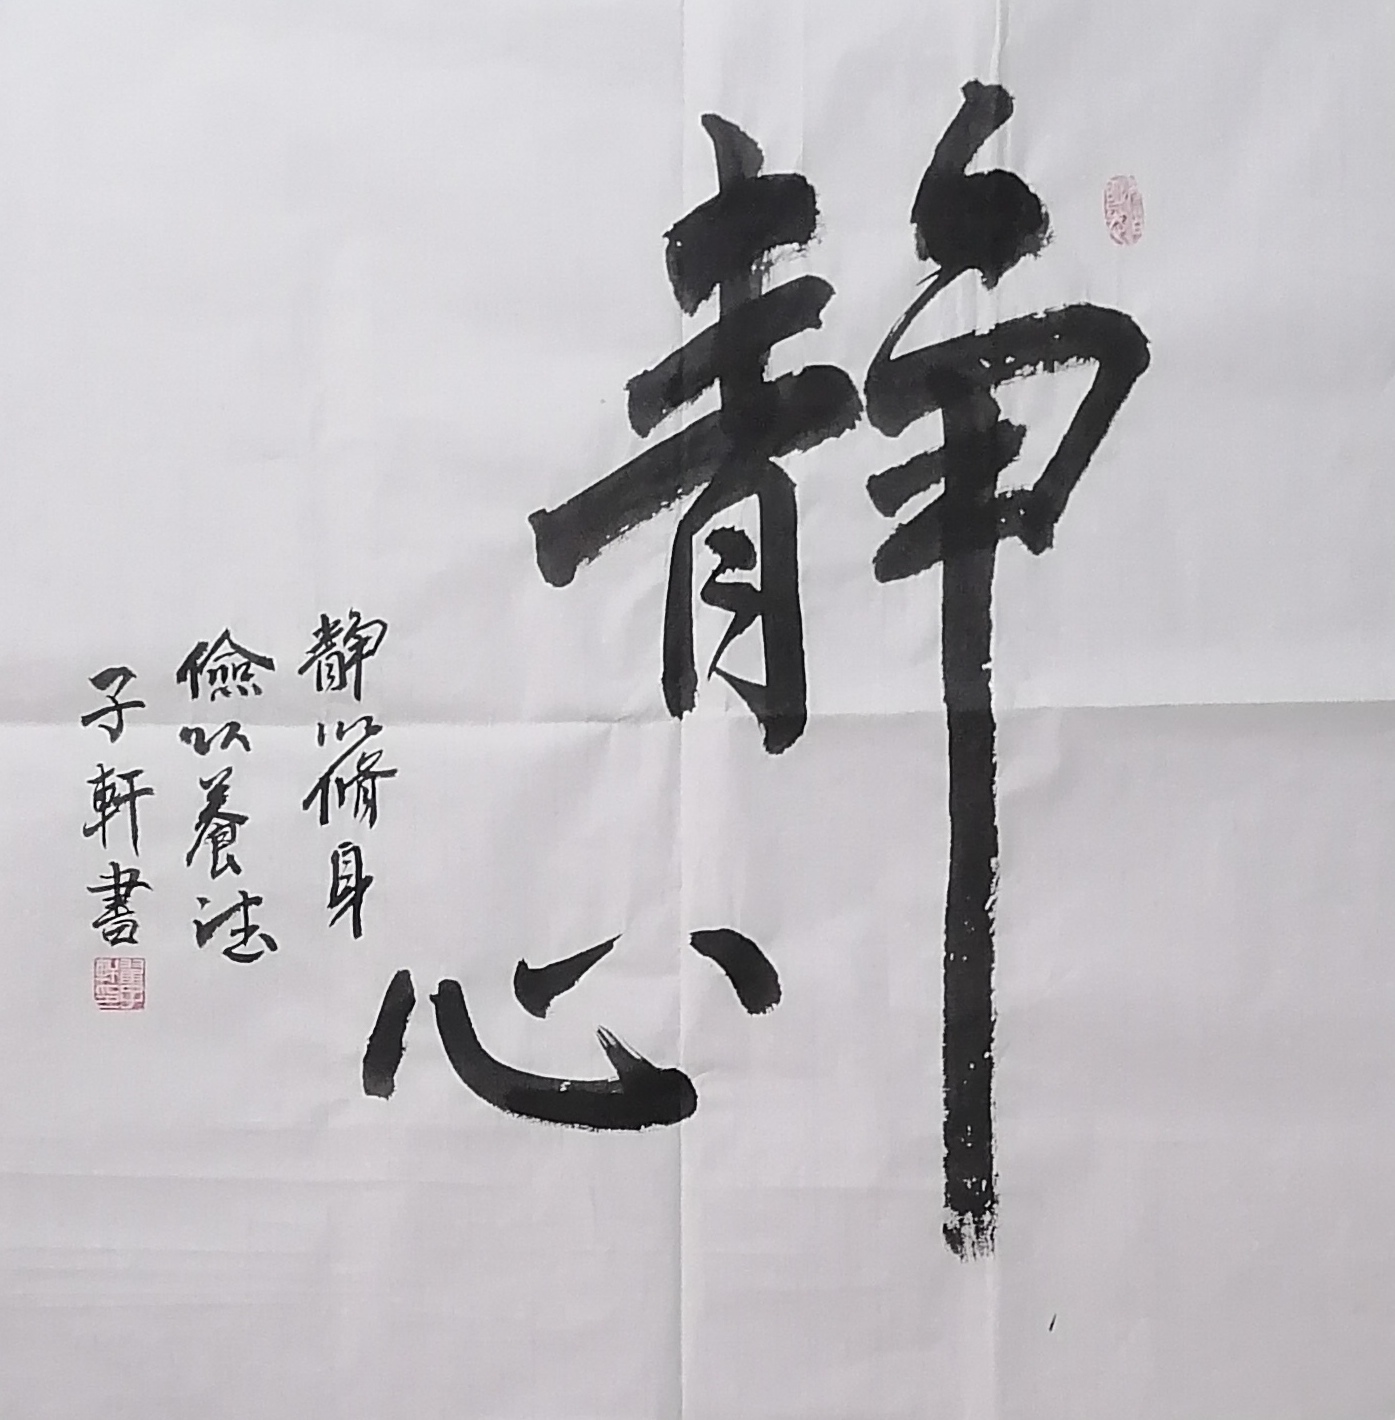 静心
静以脩身
儉以養德
子軒書